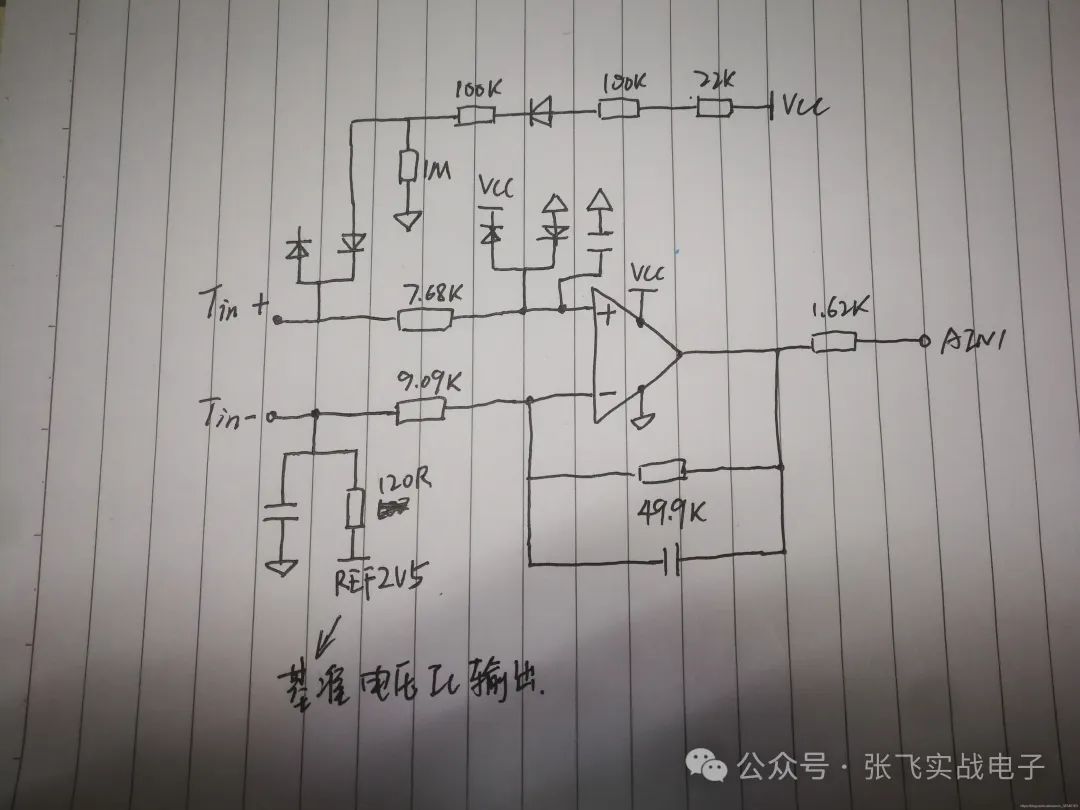 100K
100K
22K
VCC
1M
VCC
VCC
Tin +
7.68K
+
1.62K
AIN1
Tin-
9.09K
-
120R
49.9K
REF2V5
基准电压 Ic 输出.
公众号·张飞实战电子